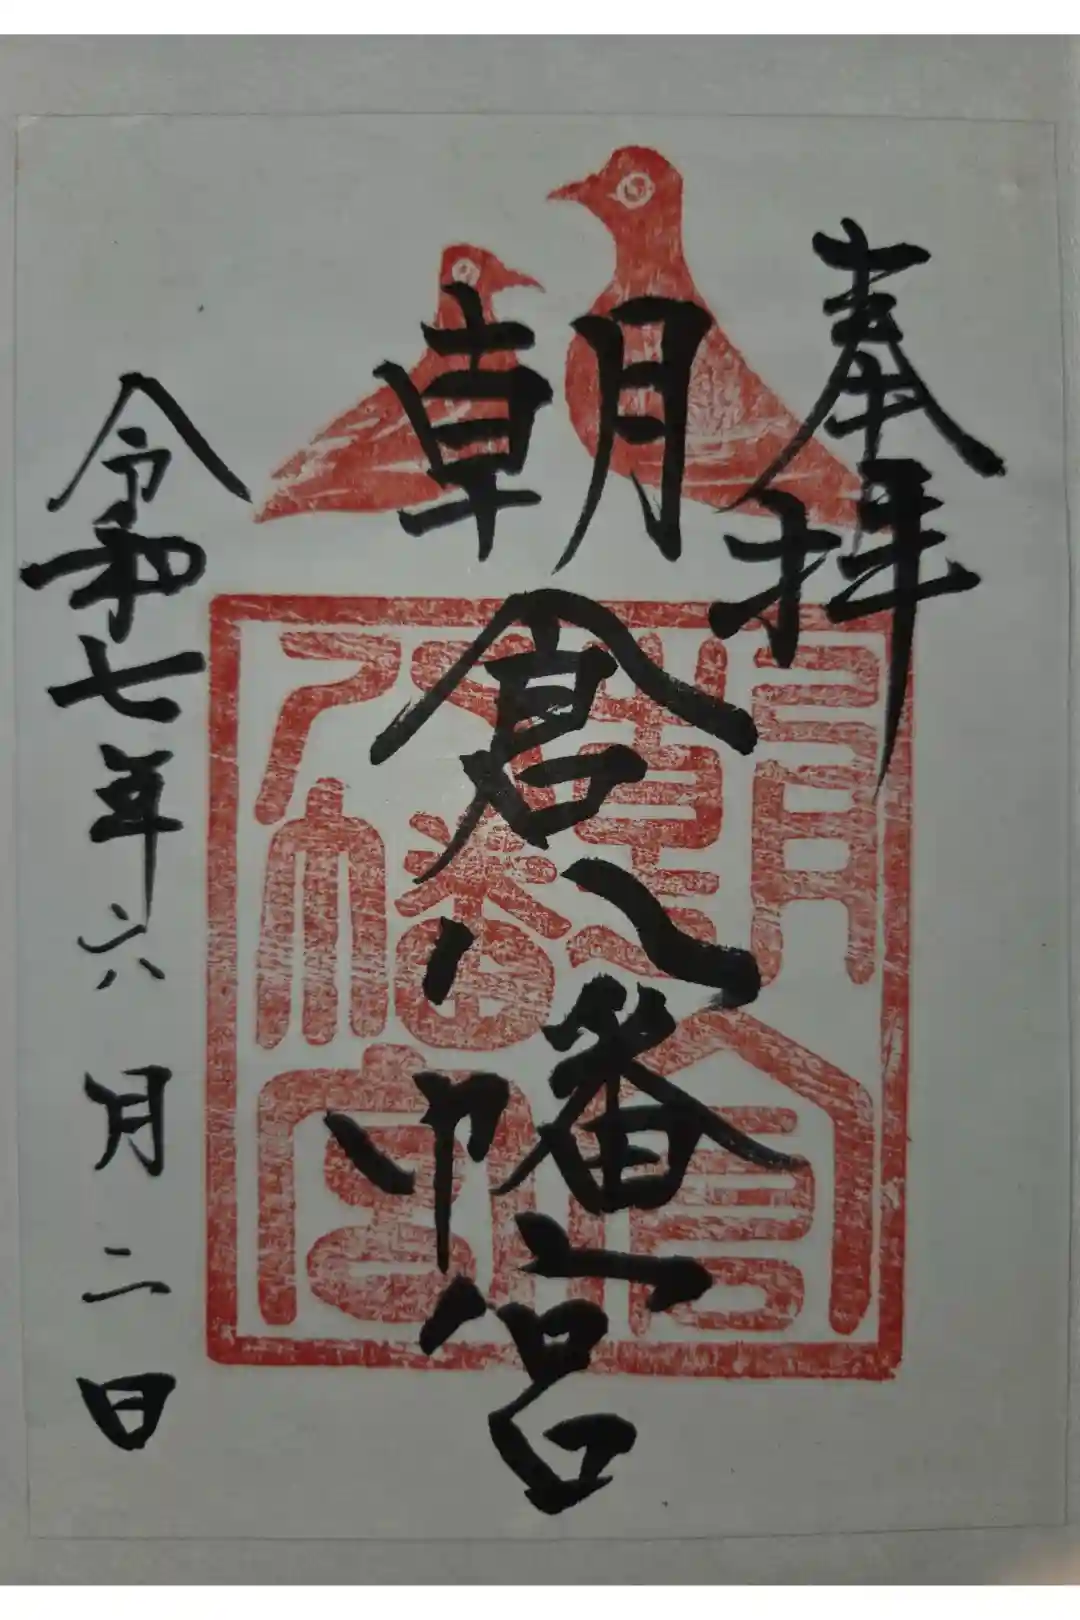 奉拝
朝倉八幡宮
令和七年六月二日
朝倉
八幡宮